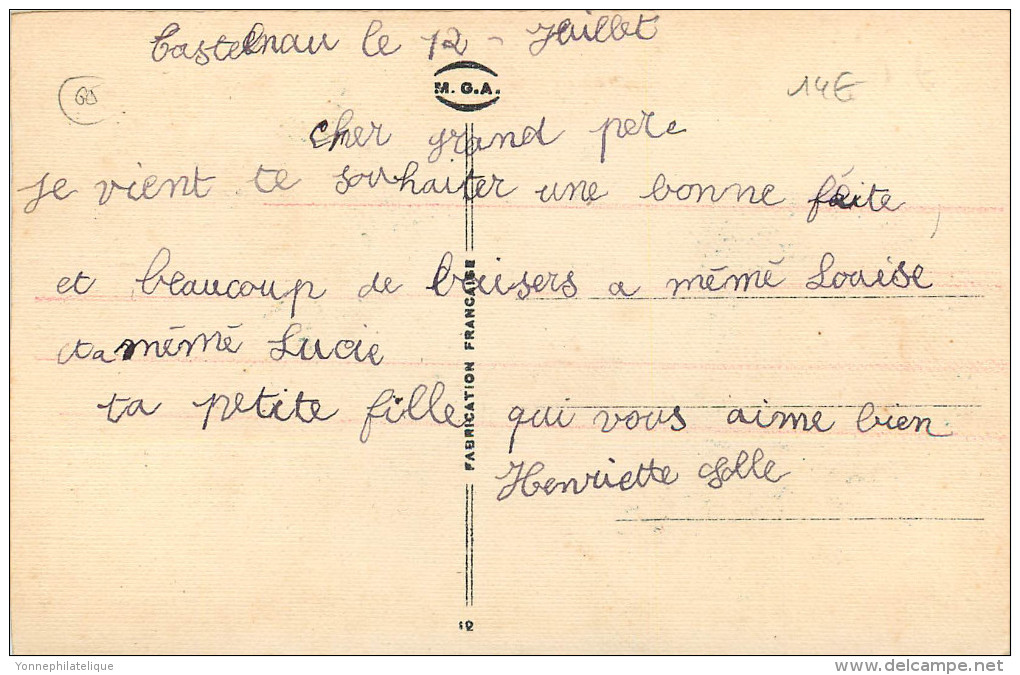 Castelnau le 12 - Juillet
M.G.A.
65
14€
cher grand pere
je vient te souhaiter une bonne féite,
et beaucoup de baisers a mémé Louise
et a mémé Lucie
ta petite fille qui vous aime bien
Henriette Solle
FABRICATION FRANCAISE
12
Yonnephilatelique
www.delcampe.net